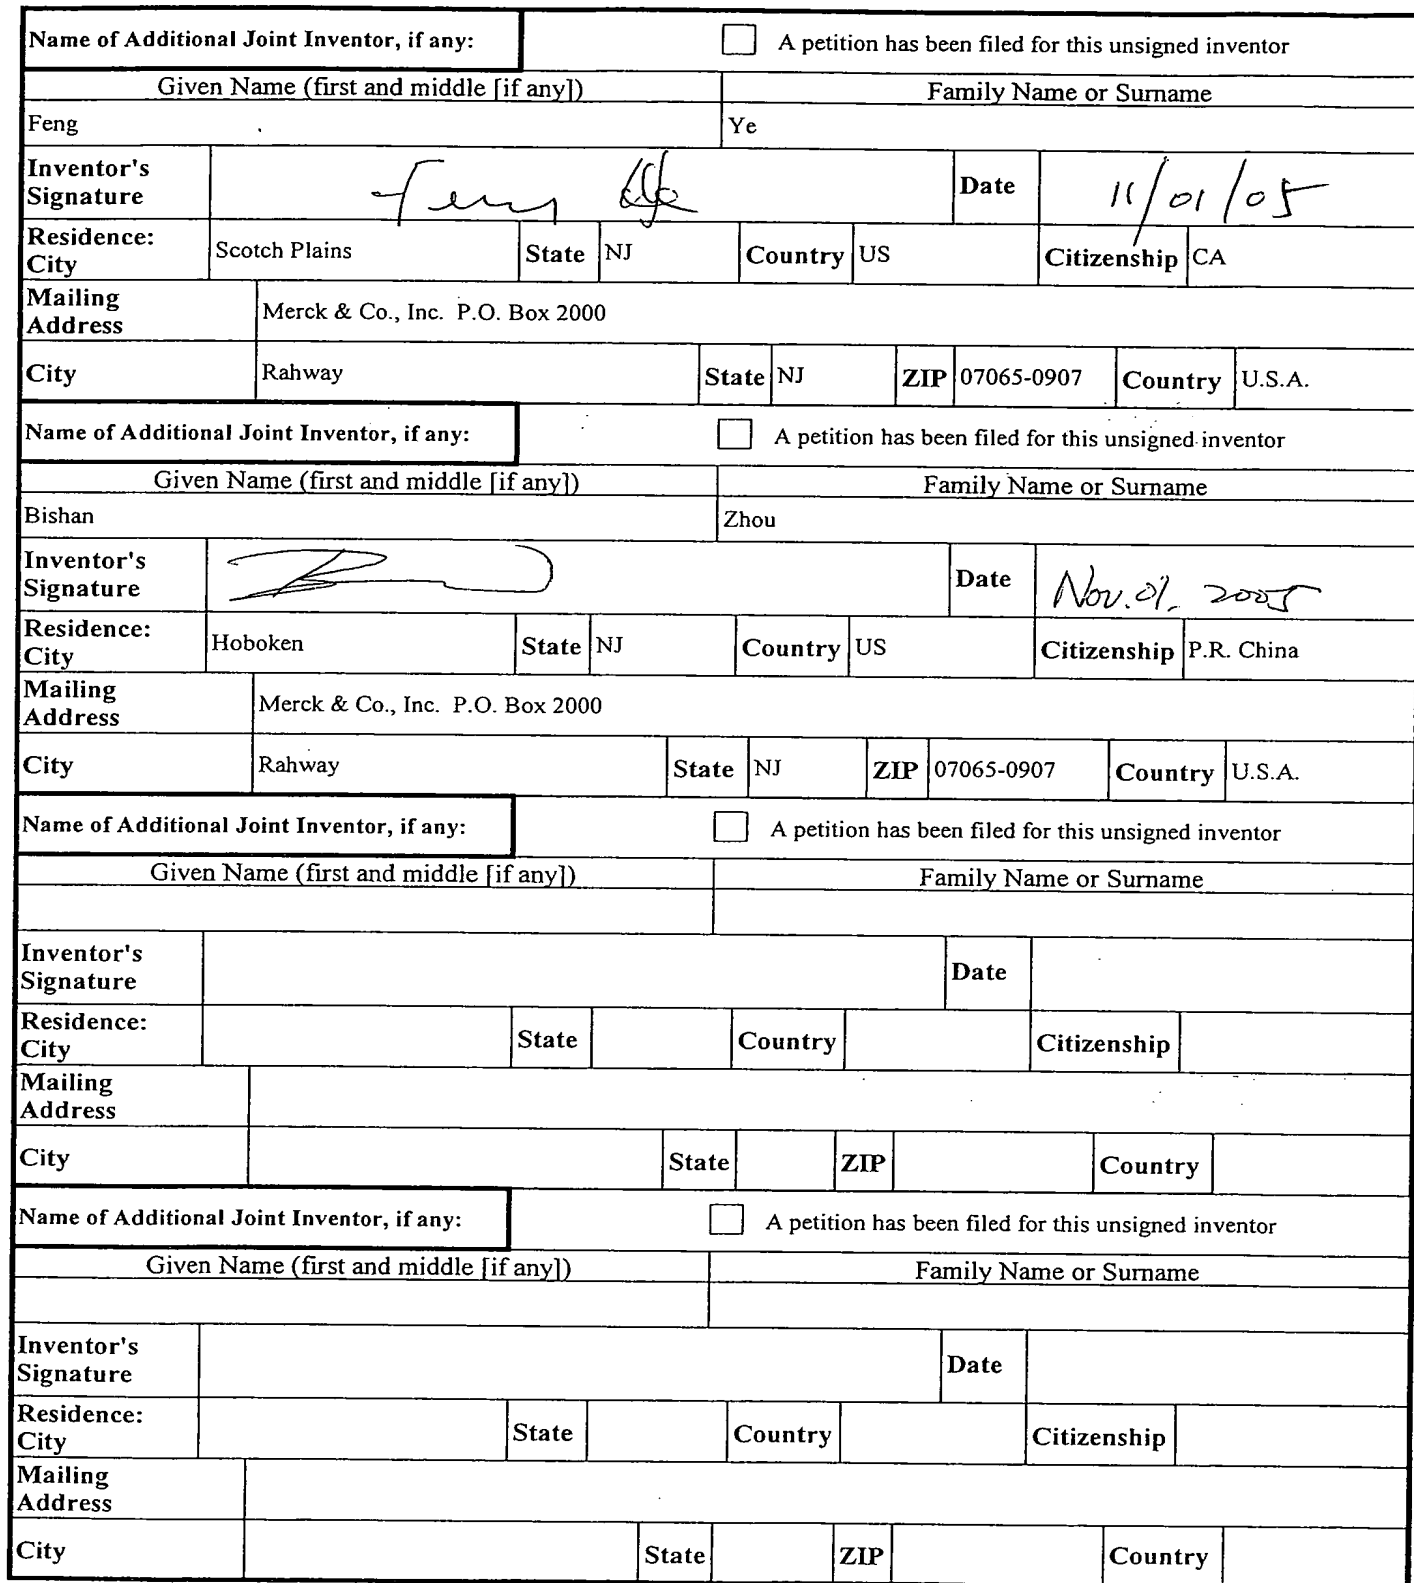 Name of Additional Joint Inventor, if any: A petition has been filed for this unsigned inventor
Given Name (first and middle [if any]) Family Name or Surname
Feng Ye
Inventor's Signature Feng Ye Date 11/01/05
Residence: City Scotch Plains State NJ Country US Citizenship CA
Mailing Address Merck & Co., Inc. P.O. Box 2000
City Rahway State NJ ZIP 07065-0907 Country U.S.A.
Name of Additional Joint Inventor, if any: A petition has been filed for this unsigned inventor
Given Name (first and middle [if any]) Family Name or Surname
Bishan Zhou
Inventor's Signature Date Nov. 01, 2005
Residence: City Hoboken State NJ Country US Citizenship P.R. China
Mailing Address Merck & Co., Inc. P.O. Box 2000
City Rahway State NJ ZIP 07065-0907 Country U.S.A.
Name of Additional Joint Inventor, if any: A petition has been filed for this unsigned inventor
Given Name (first and middle [if any]) Family Name or Surname
Inventor's Signature Date
Residence: City State Country Citizenship
Mailing Address
City State ZIP Country
Name of Additional Joint Inventor, if any: A petition has been filed for this unsigned inventor
Given Name (first and middle [if any]) Family Name or Surname
Inventor's Signature Date
Residence: City State Country Citizenship
Mailing Address
City State ZIP Country